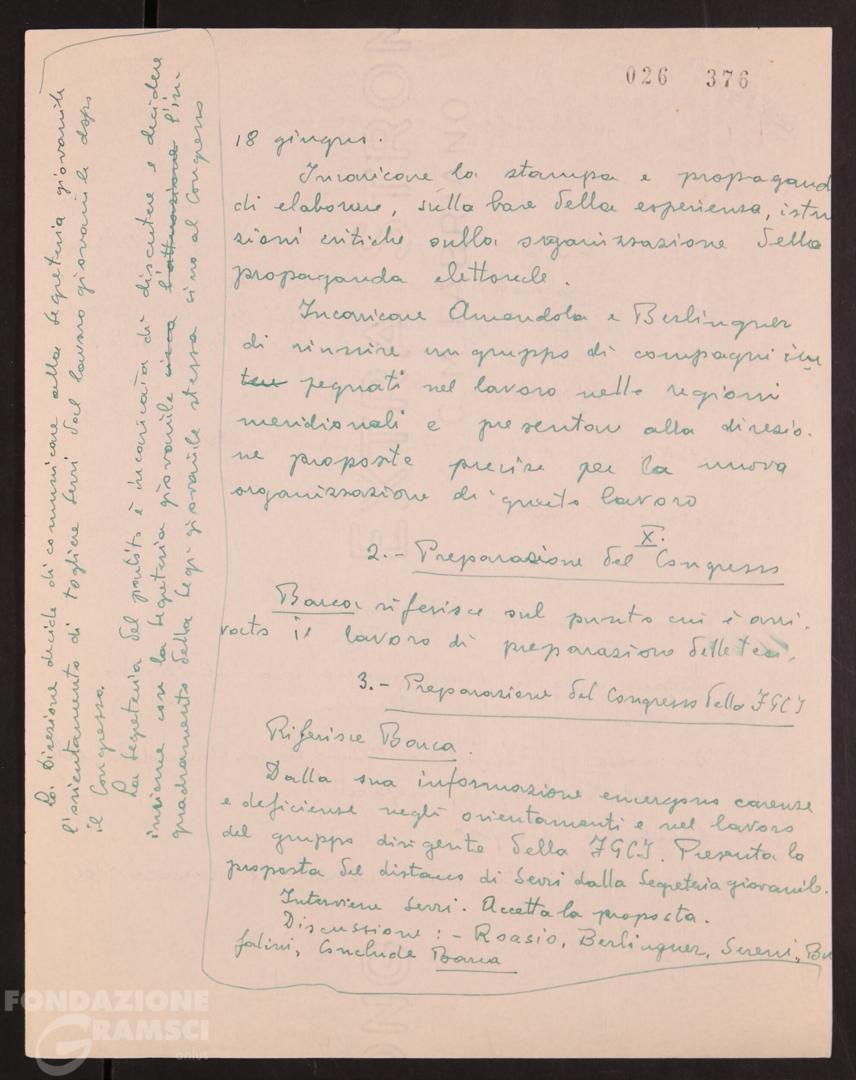 026 376
18 giugno.
Incaricare la stampa e propagand
di elaborare, sulla base della esperienza, istru
zioni critiche sulla organizzazione della
propaganda elettorale.
Incaricare Amendola e Berlinguer
di riunire un gruppo di compagni im
pegnati nel lavoro nelle regioni
meridionali e presentare alla direzio-
ne proposte precise per la nuova
organizzazione di questo lavoro
2.- Preparazione del X. Congresso
Barca riferisce sul punto cui è arri-
vato il lavoro di preparazione delle tesi.
3.- Preparazione del Congresso della FGCI
Riferisce Barca.
Dalla sua informazione emergono carenze
e deficienze negli orientamenti e nel lavoro
del gruppo dirigente della FGCI. Presenta la
proposta del distacco di Serri dalla Segreteria giovanile.
Interviene Serri. Accetta la proposta.
Discussione: - Roasio, Berlinguer, Sereni, Bu
falini, Conclude Barca
La Direzione decide di comunicare alla segreteria giovanile
l'orientamento di togliere Serri dal lavoro giovanile dopo
il Congresso.
La segreteria del partito è incaricata di discutere e decidere
insieme con la segreteria giovanile circa l'attuazione l'in-
quadramento della segr. giovanile stessa sino al Congresso
FONDAZIONE
GRAMSCI
onlus